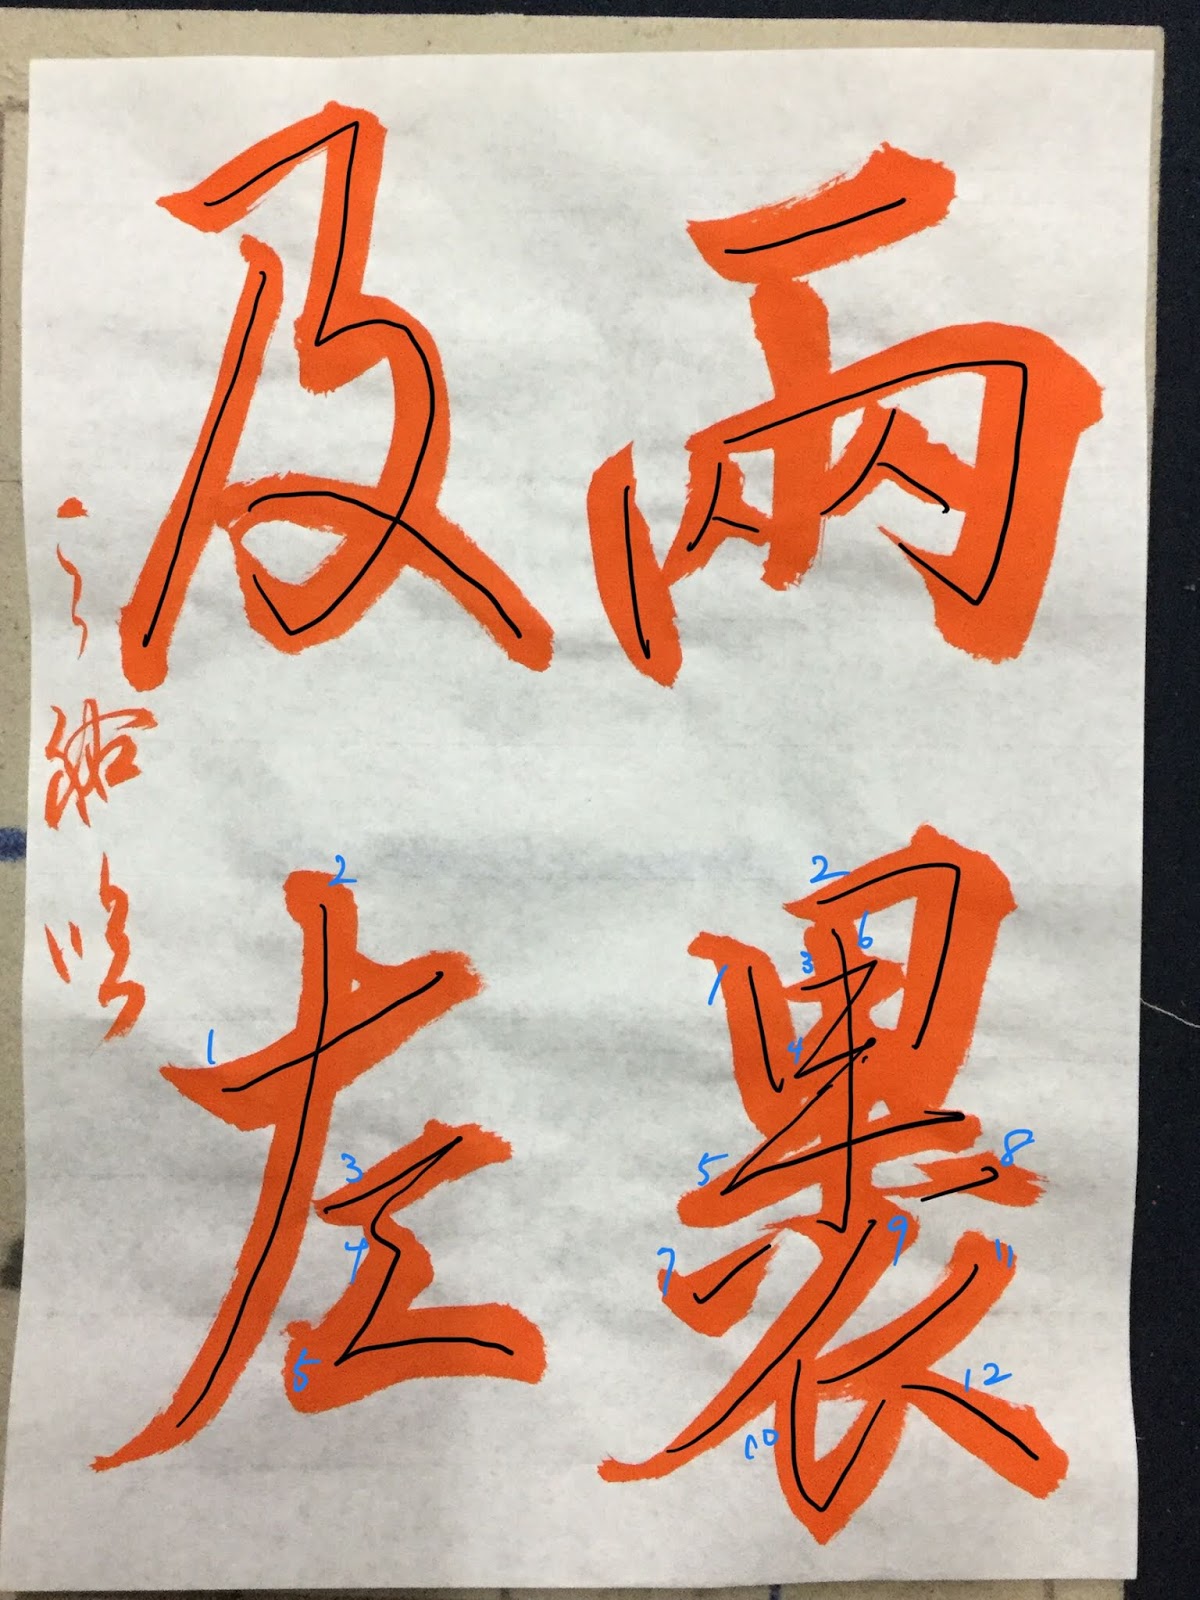 兩裹
及左
1
2
3
4
5
1
2
3
4
5
6
7
8
9
10
11
12